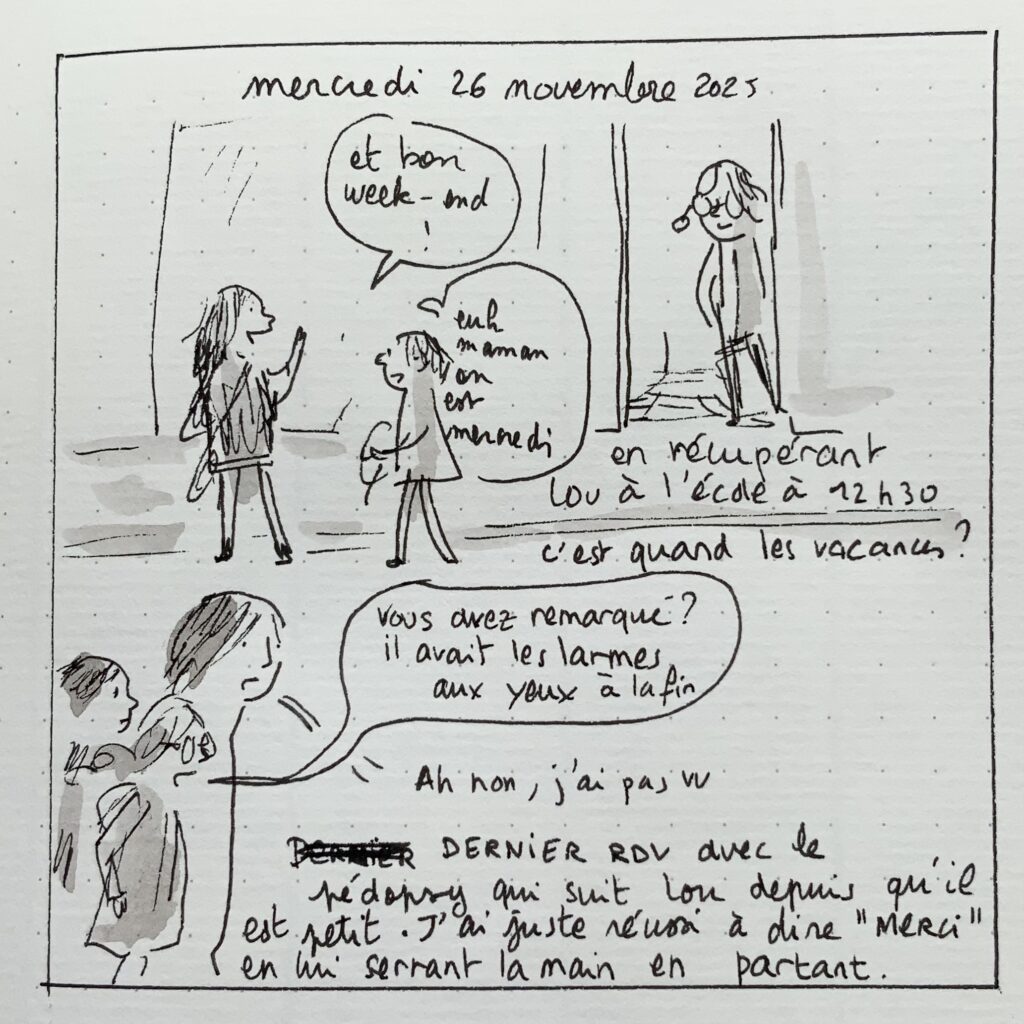 mercredi 26 novembre 2025
et bon
week-end
!
euh
maman
on
est
mercredi
en récupérant
Lou à l'école à 12h30
c'est quand les vacances?
vous avez remarqué?
il avait les larmes
aux yeux à la fin
Ah non, j'ai pas vu
DERNIER DERNIER RDV avec le
pédopsy qui suit Lou depuis qu'il
est petit. J'ai juste réussi à dire "MERCI"
en lui serrant la main en partant.